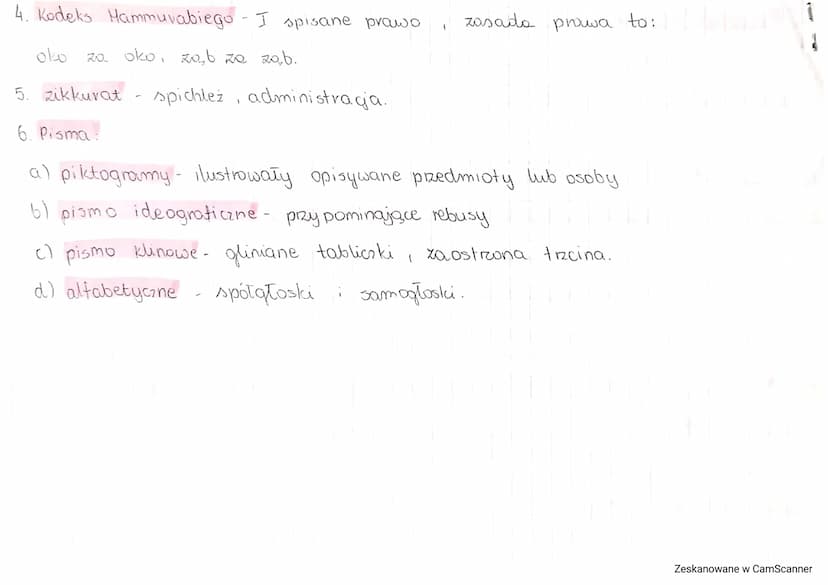 4. Kodeks Hammurabiego - I spisane prawo, zasada prawa to:
oko za oko, ząb za ząb.
5. zikkurat - spichleż, administracja.
6. Pisma:
a) piktogramy - ilustrowały opisywane przedmioty lub osoby
b) pismo ideograficzne - przypominające rebusy
c) pismo klinowe - gliniane tabliczki, zaostrzona trzcina.
d) alfabetyczne - spółgłoski i samogłoski.
Zeskanowane w CamScanner